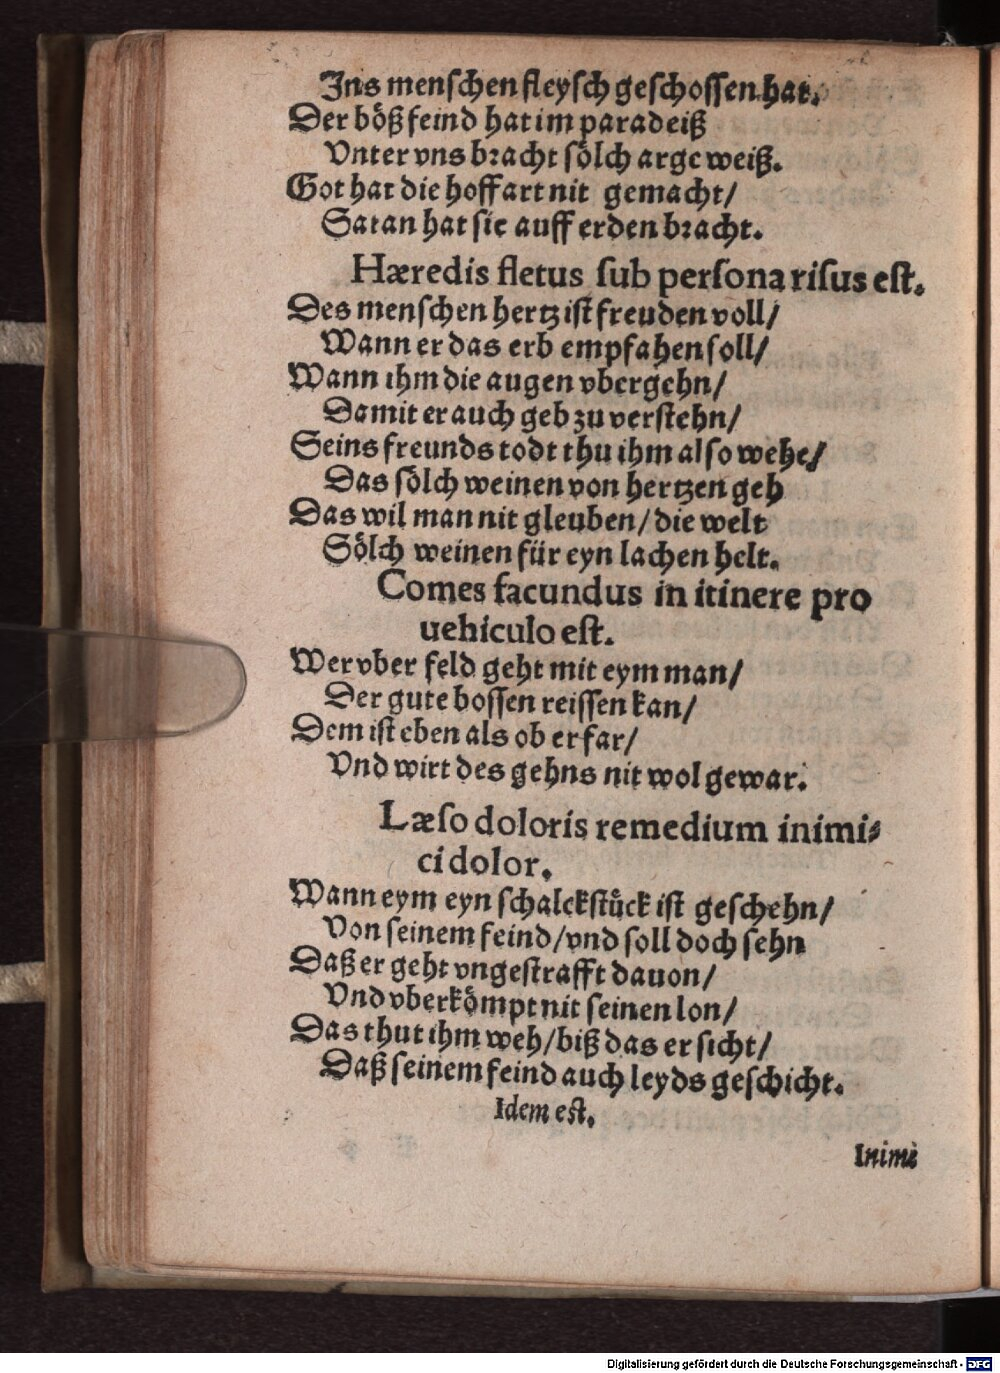 Jns menschen fleysch geschossen hat.
Der böß feind hat im paradeiß
Vnter vns bracht sölch arge weiß.
Got hat die hoffart nit gemacht/
Satan hat sie auff erden bracht.
Hæredis fletus sub persona risus est.
Des menschen hertz ist freuden voll/
Wann er das erb empfahen soll/
Wann ihm die augen vbergehn/
Damit er auch geb zu verstehn/
Seins freunds todt thu ihm also wehe/
Das sölch weinen von hertzen geh
Das wil man nit gleuben/die welt
Sölch weinen für eyn lachen helt.
Comes facundus in itinere pro
uehiculo est.
Wer vber feld geht mit eym man/
Der gute bossen reissen kan/
Dem ist eben als ob er far/
Vnd wirt des gehns nit wol gewar.
Læso doloris remedium inimi⸗
ci dolor.
Wann eym eyn schalckstück ist geschehn/
Von seinem feind/vnd soll doch sehn
Daß er geht vngestrafft dauon/
Vnd vberkömpt nit seinen lon/
Das thut ihm weh/biß das er sicht/
Daß seinem feind auch leyds geschicht.
Idem est.
Inimi
Digitalisierung gefördert durch die Deutsche Forschungsgemeinschaft - DFG